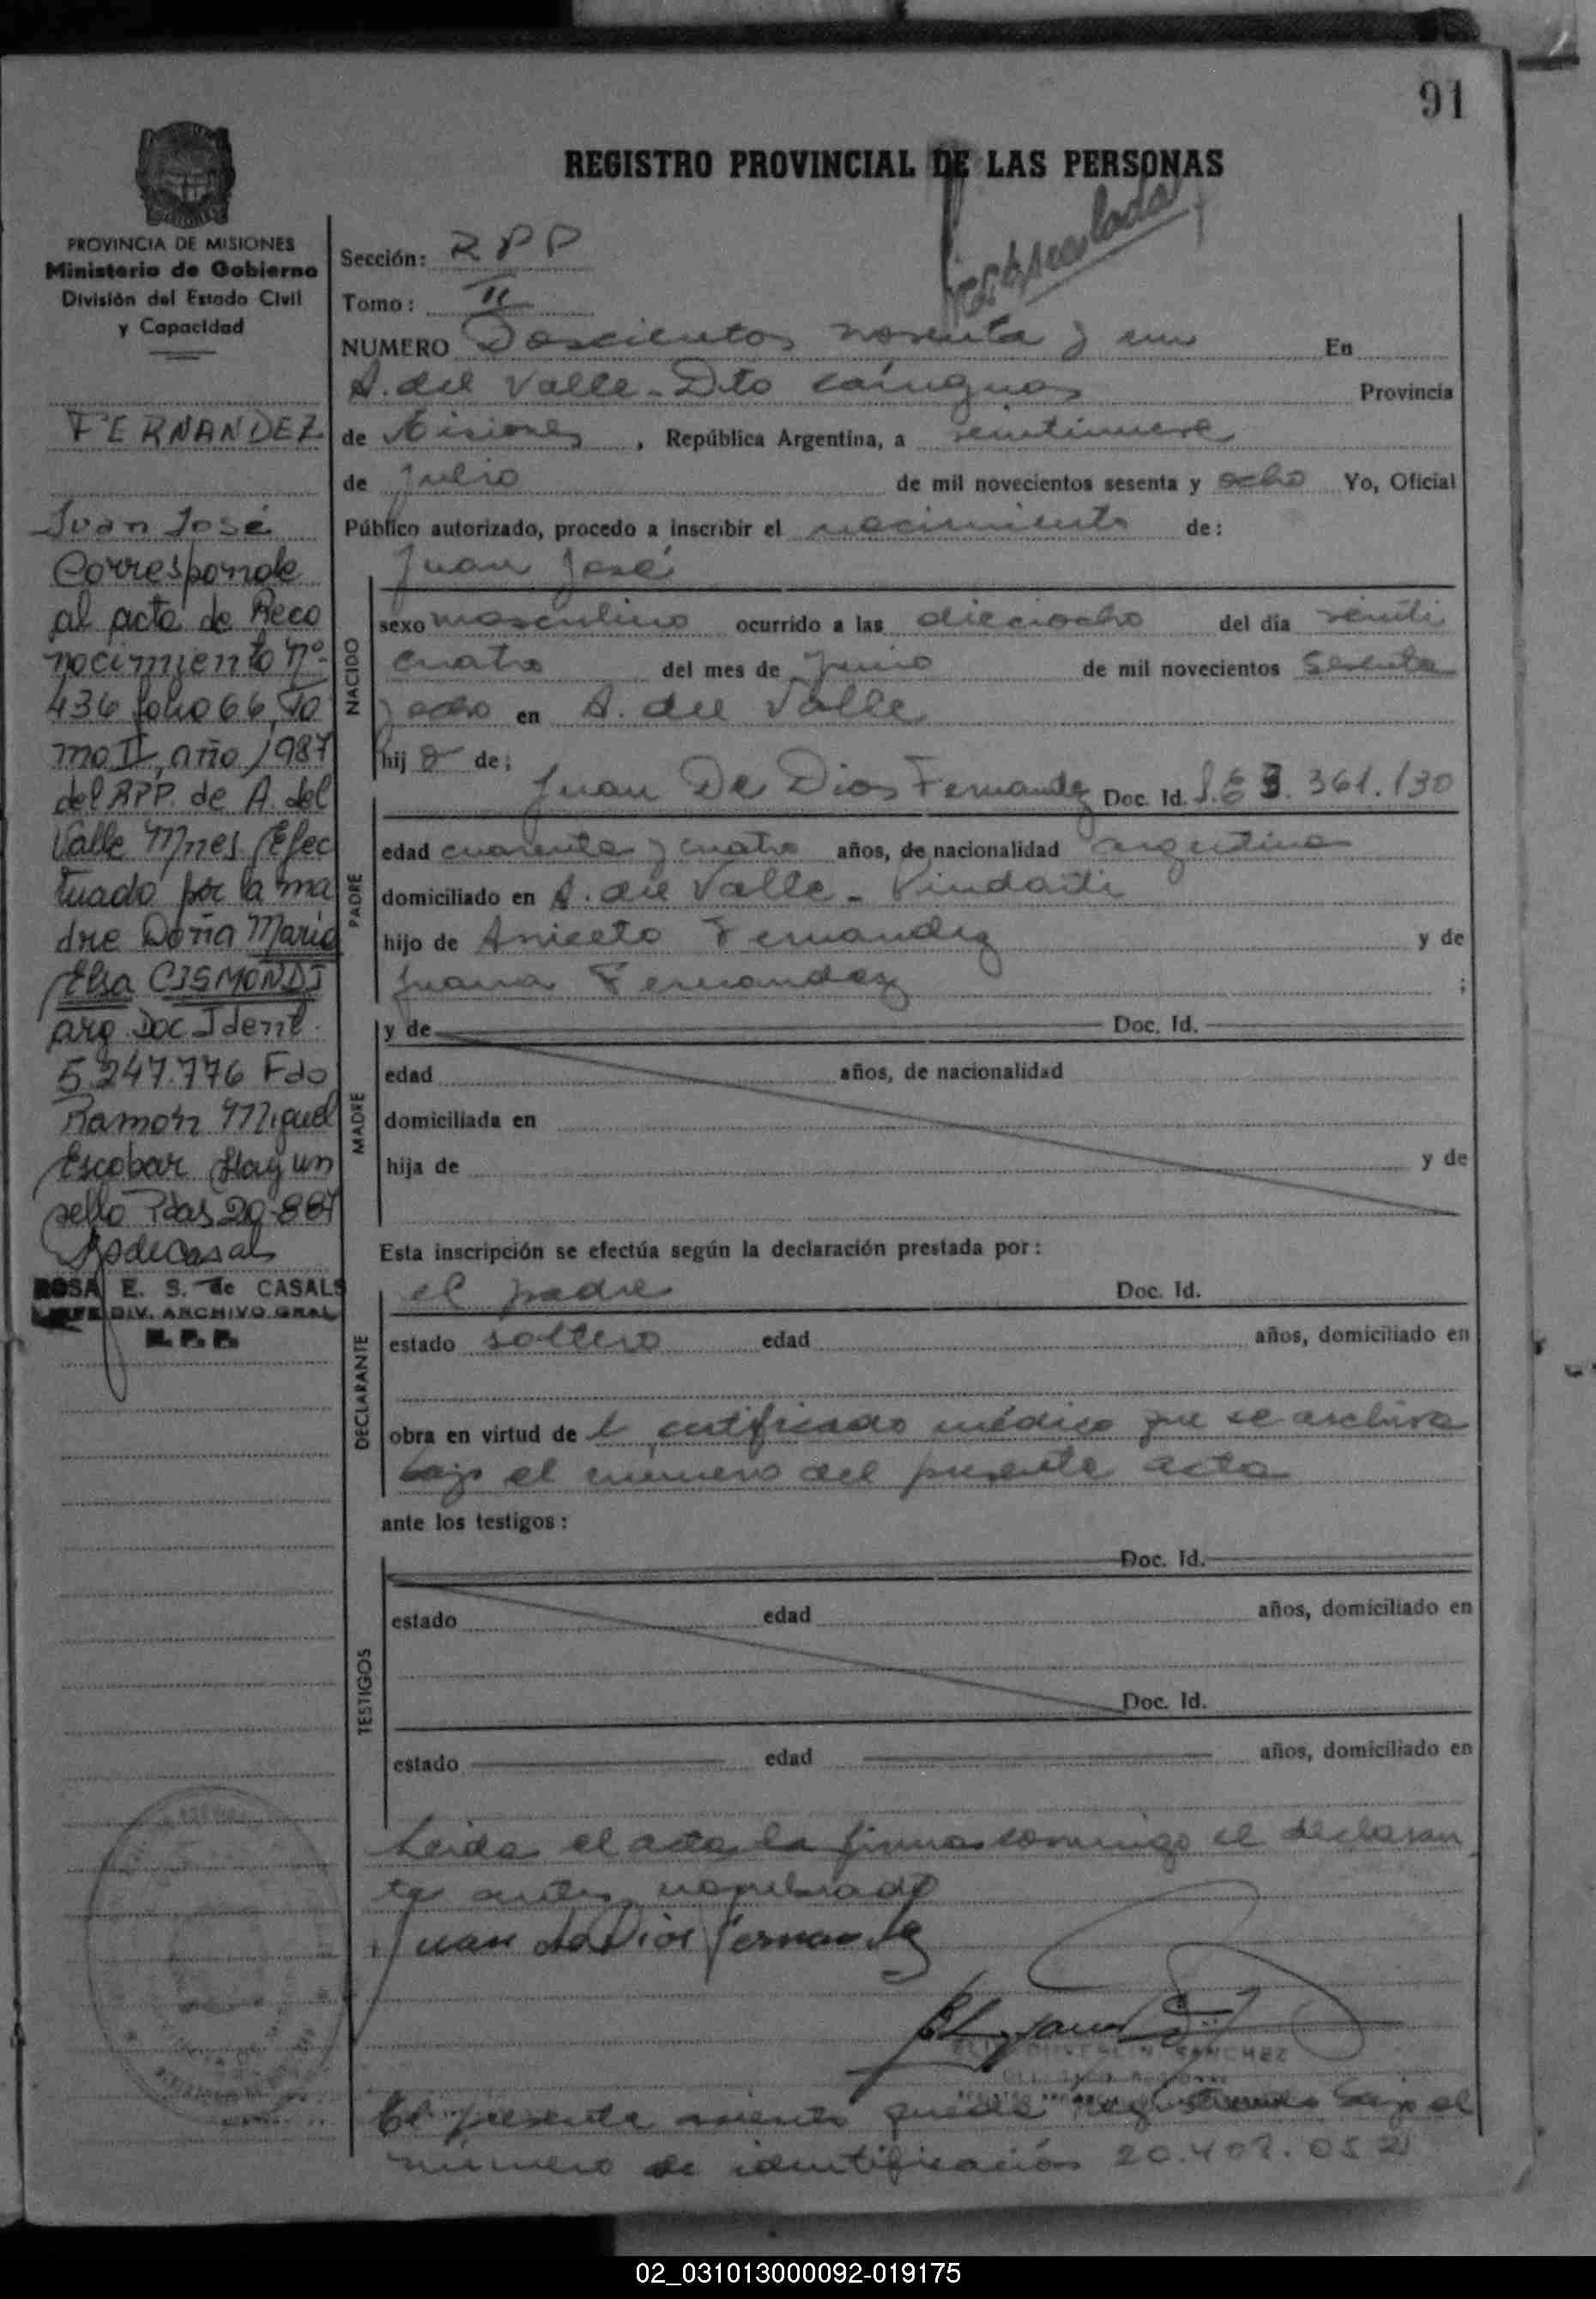 91
REGISTRO PROVINCIAL DE LAS PERSONAS
PROVINCIA DE MISIONES
Ministerio de Gobierno
División del Estado Civil
y Capacidad
FERNANDEZ
Juan José
Corresponde
al acta de Reco
nocimiento nº
436 folio 66, To
mo II, año 1987
del RPP. de A. del
Valle Mnes. Efec
tuado por la ma
dre Doña María
Elsa CISMONDI
arg. Doc Ident.
5.247.776 Fdo
Ramón Miguel
Escobar Hay un
sello Pdas 20-8-87
ROSA E. S. de CASALS
JEFE DIV. ARCHIVO GRAL
R. P. P.
Sección: RPP
Tomo: II
NUMERO Doscientos noventa y uno En
A. del Valle - Dto Cainguas Provincia
de Misiones, República Argentina, a veintinueve
de Julio de mil novecientos sesenta y ocho Yo, Oficial
Público autorizado, procedo a inscribir el nacimiento de:
NACIDO
Juan José
sexo masculino ocurrido a las dieciocho del día veinti
cuatro del mes de Junio de mil novecientos Sesenta
y ocho en A. del Valle
hij o de:
PADRE
Juan De Dios Fernandez Doc. Id. L.E 3.361.130
edad cuarenta y cuatro años, de nacionalidad argentina
domiciliado en A. del Valle - Pindaiti
hijo de Aniceto Fernandez y de
Juana Fernandez ;
MADRE
y de Doc. Id.
edad años, de nacionalidad
domiciliada en
hija de y de
Esta inscripción se efectúa según la declaración prestada por:
DECLARANTE
el padre Doc. Id.
estado soltero edad años, domiciliado en
obra en virtud de l certificado médico que se archiva
bajo el número del presente acta
ante los testigos:
TESTIGOS
Doc. Id.
estado edad años, domiciliado en
Doc. Id.
estado edad años, domiciliado en
Leida el acta, la firma conmigo el declaran
te antes nombrado
Juan de Dios Fernandez
SANCHEZ
El presente asiento queda registrado bajo el
número de identificación 20.407.052
02_031013000092-019175